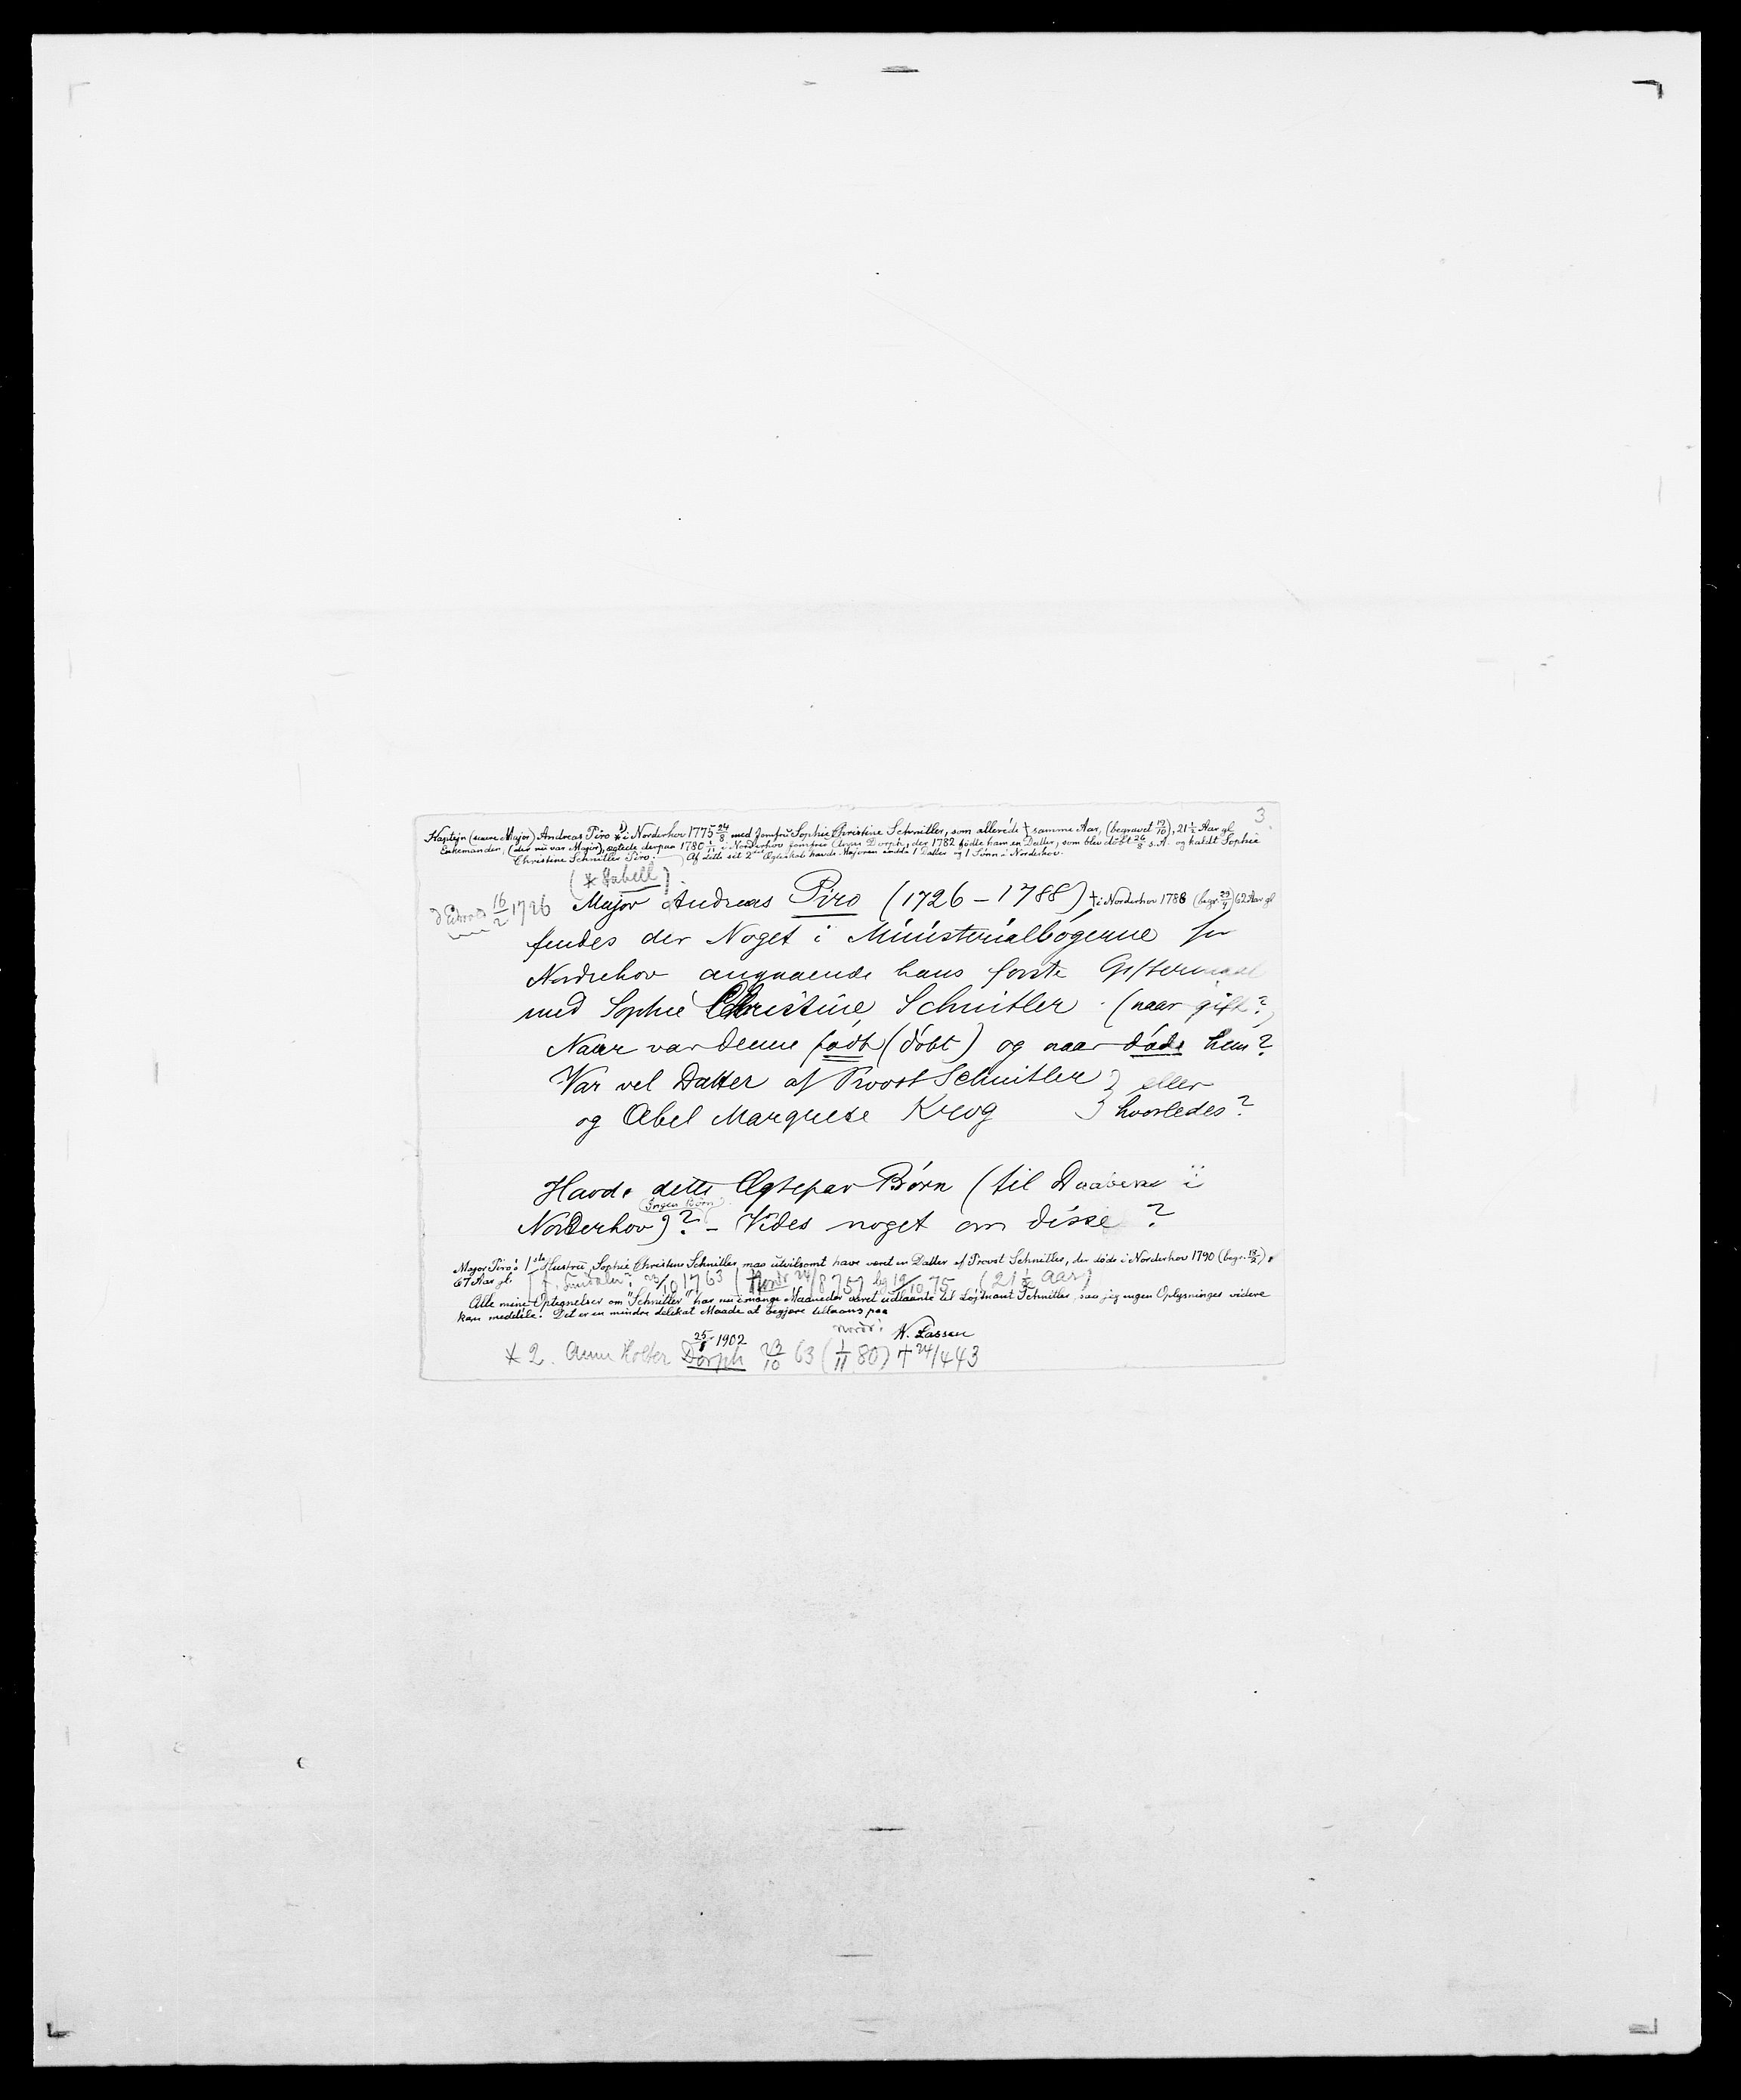 3.
Kaptejn (senere Major) Andreas Piro * i Norderhov 1775 24/8 med Jomfru Sophie Christine Schnitler, som allerede † samme Aar, (begravet 19/10), 21½ Aar gl.
Enkemanden, (der nu var Major), ægtede derpaa 1780 1/11 i Norderhov Jomfru Dorph, der 1782 fødte ham en Datter, som blev døbt 26/8 s. A. og kaldt Sophie
Christine Schnitler Piro. Af dette sit 2det Ægteskab havde Majoren endda 1 Datter og 1 Sønn i Norderhov.
(* Stabell)
16/2 1726 Major Andreas Piro (1726 – 1788) † i Norderhov 1788 (begr. 29/4) 62 Aar gl
findes der Noget i Ministerialbøgerne for
Norderhov angaaende hans første Giftermaal
med Sophie Christine Schnitler (naar gift?)
Naar var denne født (døbt) og naar døde hun?
Var vel Datter af Provst Schnitler } eller
og Abel Margrete Krog } hvorledes?
Havde dette Ægtepar Børn (til Daaben i
(Ingen Børn)
Norderhov)? – Vides noget om disse?
Major Piro's 1ste Hustru, Sophie Christine Schnitler, maa utvilsomt have været en Datter af Provst Schnitler, der døde i Norderhov 1790 (begr. 18/2),
67 Aar gl. 23/10 1763 (Nordr 24/8 75) bg 19/10 75 (21½ Aar)
Alle mine Optegnelser om "Schnitler" har nu i mange Maaneder været udlaante til Løjtnant Schnitler, saa jeg ingen Oplysninger videre
kan meddele. Det er en mindre delikat Maade at begjøre tillaans paa
25/8 1902 W. Lassen
* 2. Anna Holter Dorph 23/10 63 (1/11 80) † 24/4 43